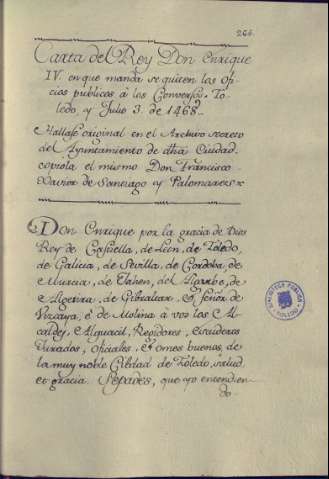 264.
Carta del Rey Don Enrique
IV. en que manda se quiten los ofi
cios publicos á los Conversos. To-
ledo, y Julio 3. de 1468.
Hallase original en el Archivo secreto
del Ayuntamiento de dha Ciudad.
copiola el mismo Don Francisco
Xavier de Santiago y Palomares.
Don Enrique por la gracia de Dios
Rey de Castiella, de Leon, de Toledo,
de Galicia, de Sevilla, de Cordoba, de
Murcia, de Jahen, del Algarbe, de
Algecira, de Gibraltar, é señor de
Vizcaya, é de Molina á vos los Al-
caldes, Alguacil, Regidores, escuderos
Jurados, oficiales, é omes buenos, de
la muy noble Cibdad de Toledo, salud
et gracia. Sepades, que yo entendien
do.
BIBLIOTECA PUBLICA
TOLEDO